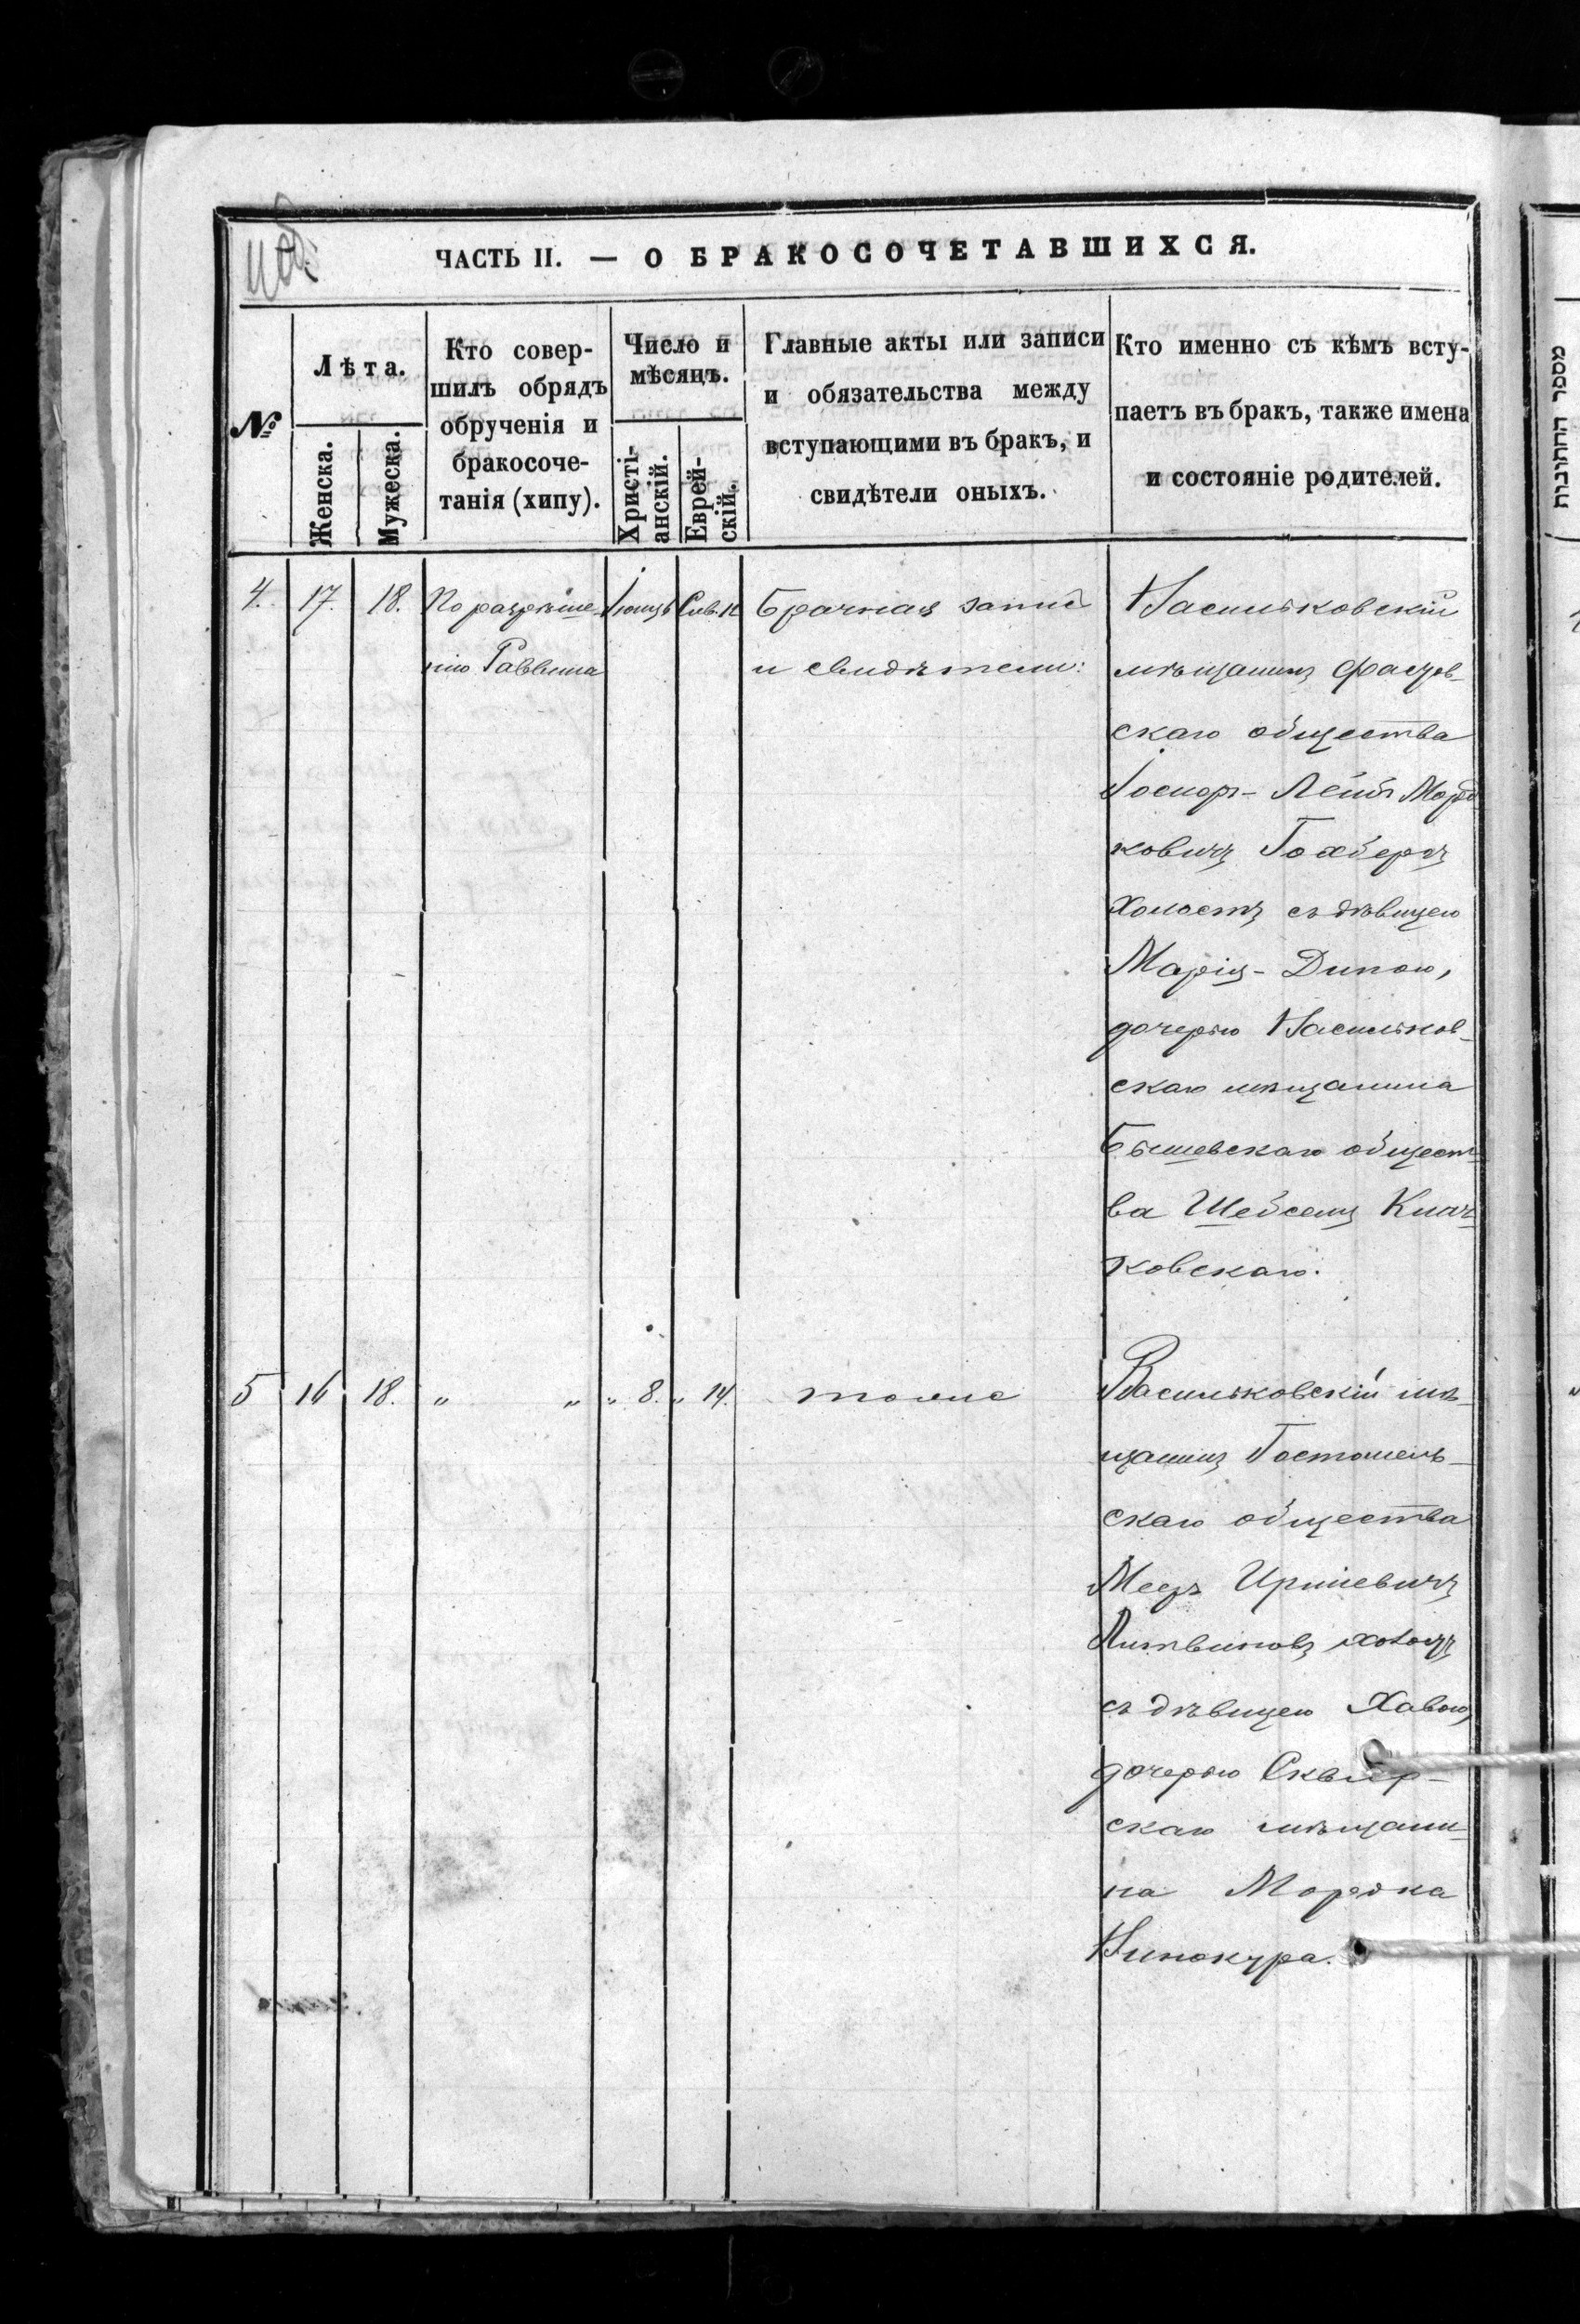 ЧАСТЬ II. — О БРАКОСОЧЕТАВШИХСЯ.
№
Лѣта.
Женска.
Мужеска.
Кто совер-
шилъ обрядъ
обрученія и
бракосоче-
танія (хипу).
Число и
мѣсяцъ.
Христі-
анскій.
Еврей-
скій.
Главные акты или записи
и обязательства между
вступающими въ бракъ, и
свидѣтели оныхъ.
Кто именно съ кѣмъ всту-
паетъ въ бракъ, также имена
и состояніе родителей.
מספר החתונות
4. 17. 18. По разрѣше-
нію Раввина
Брачная запись
и свидѣтели:
Васильковскій
мѣщанинъ Фастов-
скаго общества
Лейб Мордо
ковичъ Гохбергъ
холостъ съ дѣвицею
Марія-Диною,
дочерью Васильков-
скаго мѣщанина
Бышевскаго общест-
ва Шейсемъ
ковскаго.
5 16 18. " " " 8. " 14. тоже
Васильковскій мѣ-
щанинъ Гостомель-
скаго общества
Иршевичъ
Литвиновъ
съ дѣвицею Хавою,
дочерью Сквир-
скаго мѣщани-
на Мордка
Винокура.